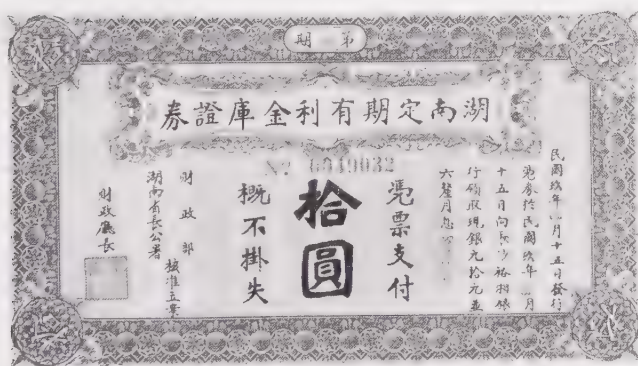 第 期
湖南定期有利金庫證券
民國玖年 月十五日發行
憑券於民國玖年 月
十五日向長沙裕湘銀
行領取現銀元拾元並
六釐月息
憑票支付
拾圓
概不掛失
財政部
湖南省長公署
核准立案
財政廳長